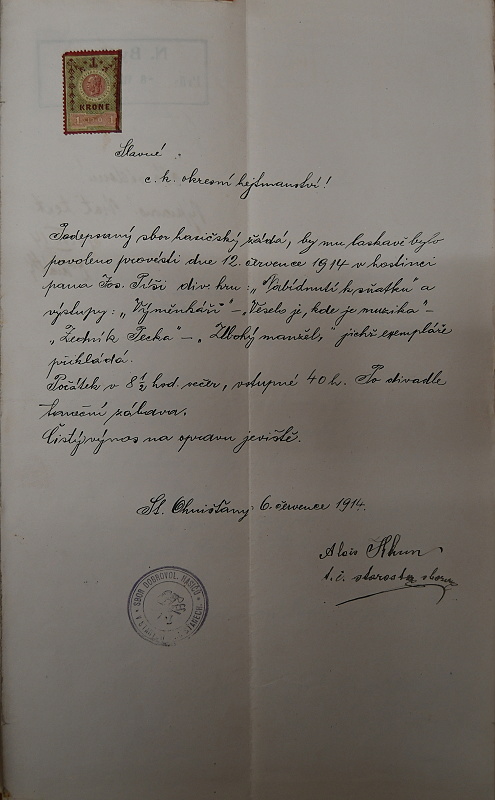 1
KRONE
1 1
Slavné
c. k. okresní hejtmanství!
Podepsaný sbor hasičský žádá, by mu laskavě bylo
povoleno provésti dne 12. července 1914 v hostinci
pana Jos. div. hru: „Nabídnutí k sňatku a
výstupy: „Výměnkáři" – „Veselo je, kde je muzika" –
„Technik Tecka" – „Ubohý manžel," jichž exempláře
přikládá.
Počátek v 8 1/2 hod. večer, vstupné 40 h. Po divadle
taneční zábava.
Čistý výnos na opravu jeviště.
St. Ohnišťany 6. července 1914.
Alois
t. č. starosta sboru
SBOR DOBROVOL. HASIČŮ